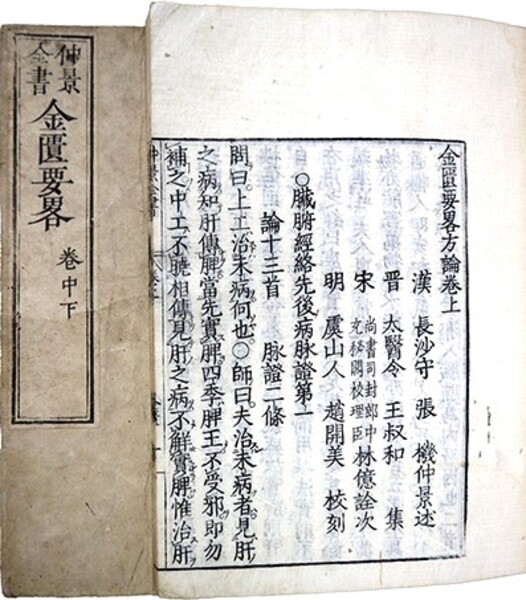 仲景
全書
金匱要畧
卷中下
金匱要畧方論卷上
漢 長沙守 張 機仲景述
晉 太醫令 王叔和 集
宋 尚書司封郎中
充秘閣校理臣 林億詮次
明 虞山人 趙開美 校刻
○臟腑經絡先後病脉證第一
論十三首 脉證二條
問曰上工治未病何也○師曰夫治未病者見肝
之病知肝傳脾當先實脾四季脾王不受邪即勿
補之中工不曉相傳見肝之病不觧實脾惟治肝